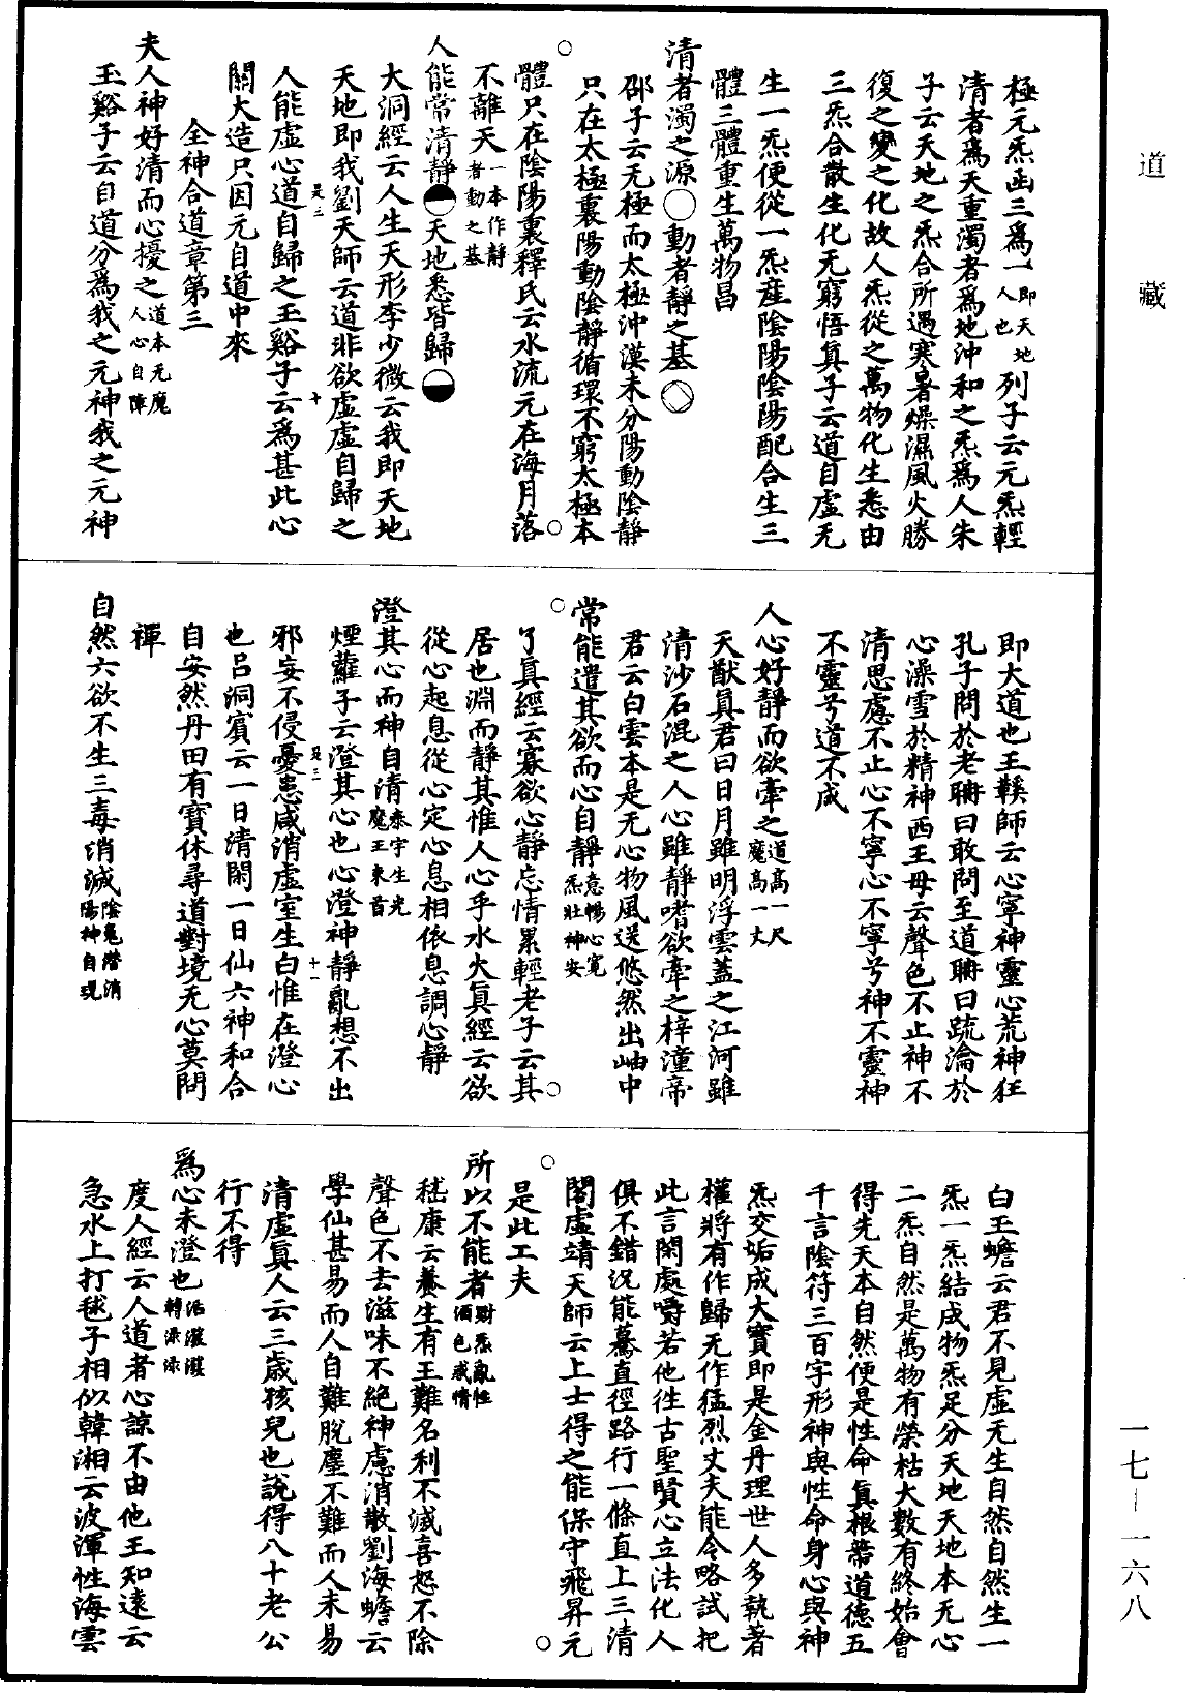 道藏
一七—一六八
極元炁函三爲一即天地人也列子云元炁輕
清者爲天重濁者爲地沖和之炁爲人朱
子云天地之炁合所遇寒暑燥濕風火勝
復之變之化故人炁從之萬物化生悉由
三炁合散生化无窮悟眞子云道自虛无
生一炁便從一炁產陰陽陰陽配合生三
體三體重生萬物昌
清者濁之源○動者靜之基
邵子云无極而太極沖漠未分陽動陰靜
只在太極裏陽動陰靜循環不窮太極本
體只在陰陽裏釋氏云水流元在海月落
不離天一本作靜者動之基
人能常清靜天地悉皆歸
大洞經云人生天形李少微云我即天地
天地即我劉天師云道非欲虛虛自歸之
是三　十
人能虛心道自歸之玉谿子云爲甚此心
關大造只因元自道中來
全神合道章第三
夫人神好清而心擾之道本元魔人心自障
玉谿子云自道分爲我之元神我之元神
即大道也王䅿師云心寧神靈心荒神狂
孔子問於老聃曰敢問至道聃曰疏瀹於
心澡雪於精神西王母云聲色不止神不
清思慮不止心不寧心不寧兮神不靈神
不靈兮道不成
人心好靜而欲牽之道高一尺魔高一丈
天猷眞君曰日月雖明浮雲蓋之江河雖
清沙石混之人心雖靜嗜欲牽之梓潼帝
君云白雲本是无心物風送悠然出岫中
常能遣其欲而心自靜意暢心寬炁壯神安
了眞經云寡欲心靜忘情累輕老子云其
居也淵而靜其惟人心乎水火眞經云欲
從心起息從心定心息相依息調心靜
澄其心而神自清泰宇生光魔王束首
煙蘿子云澄其心也心澄神靜亂想不出
是三　十一
邪妄不侵憂恚咸消虛室生白惟在澄心
也吕洞賓云一日清閑一日仙六神和合
自安然丹田有寶休尋道對境无心莫問
禪
自然六欲不生三毒消滅陰鬼潛消陽神自現
白玉蟾云君不見虛无生自然自然生一
炁一炁結成物炁足分天地天地本无心
二炁自然是萬物有榮枯大數有終始會
得先天本自然便是性命眞根蒂道德五
千言陰符三百字形神與性命身心與神
炁交姤成大寶即是金丹理世人多執著
權將有作歸无作猛烈丈夫能令略試把
此言閑處嚼若他徃古聖賢心立法化人
俱不錯況能驀直徑路行一條直上三清
閣虛靖天師云上士得之能保守飛昇元
是此工夫
所以不能者財炁亂性酒色惑情
嵇康云養生有王難名利不減喜怒不除
聲色不去滋味不絕神慮消散劉海蟾云
學仙甚易而人自難脫塵不難而人未易
清虛眞人云三歲孩兒也說得八十老公
行不得
爲心未澄也
度人經云人道者心諒不由他王知遠云
急水上打毬子相似韓湘云波渾性海雲